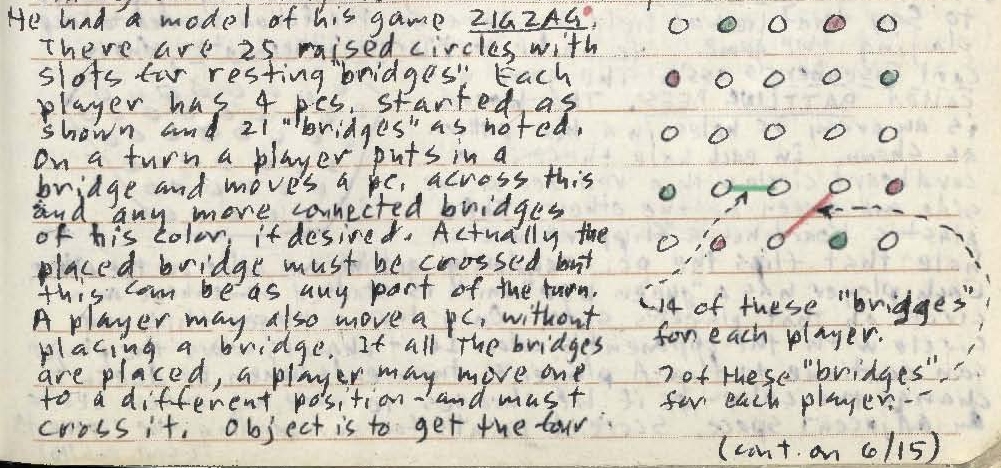 He had a model of his game ZIGZAG.
There are 25 raised circles with
slots for resting "bridges". Each
player has 4 pcs. started as
shown and 21 "bridges" as noted.
On a turn a player puts in a
bridge and moves a pc. across this
and any more connected bridges
of his color, if desired. Actually the
placed bridge must be crossed but
this can be as any part of the turn.
A player may also move a pc. without
placing a bridge. If all the bridges
are placed, a player may move one
to a different position - and must
cross it. Object is to get the four
14 of these "bridges"
for each player.
7 of these "bridges"
for each player.
(cont. on 6/15)